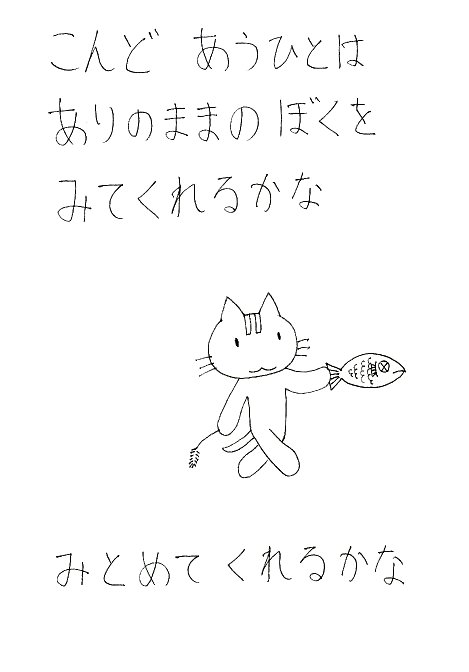 こんど あうひとは
ありのままの ぼくを
みてくれるかな
みとめて くれるかな